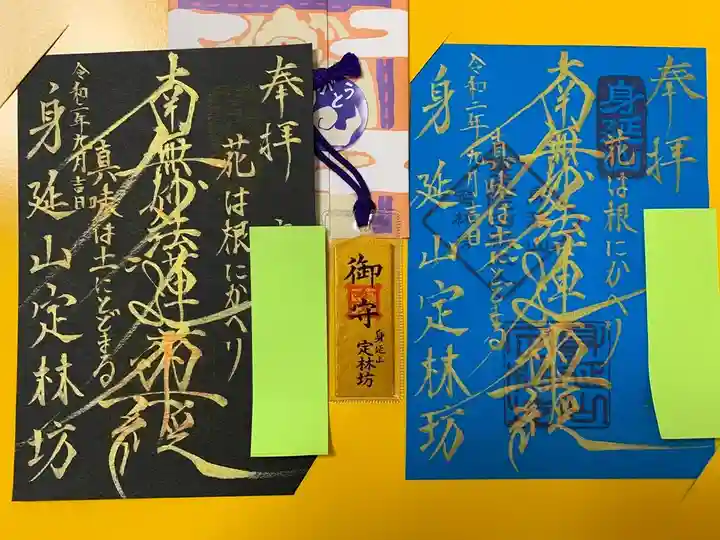 奉拝
花は根にかへり
南無妙法蓮華経
真味は土にとどまる
令和二年九月吉日
身延山定林坊
とう
御守
身延山
定林坊
奉拝
身延
花は根にかへり
南無妙法蓮華経
真味は土にとどまる
身延山定林坊